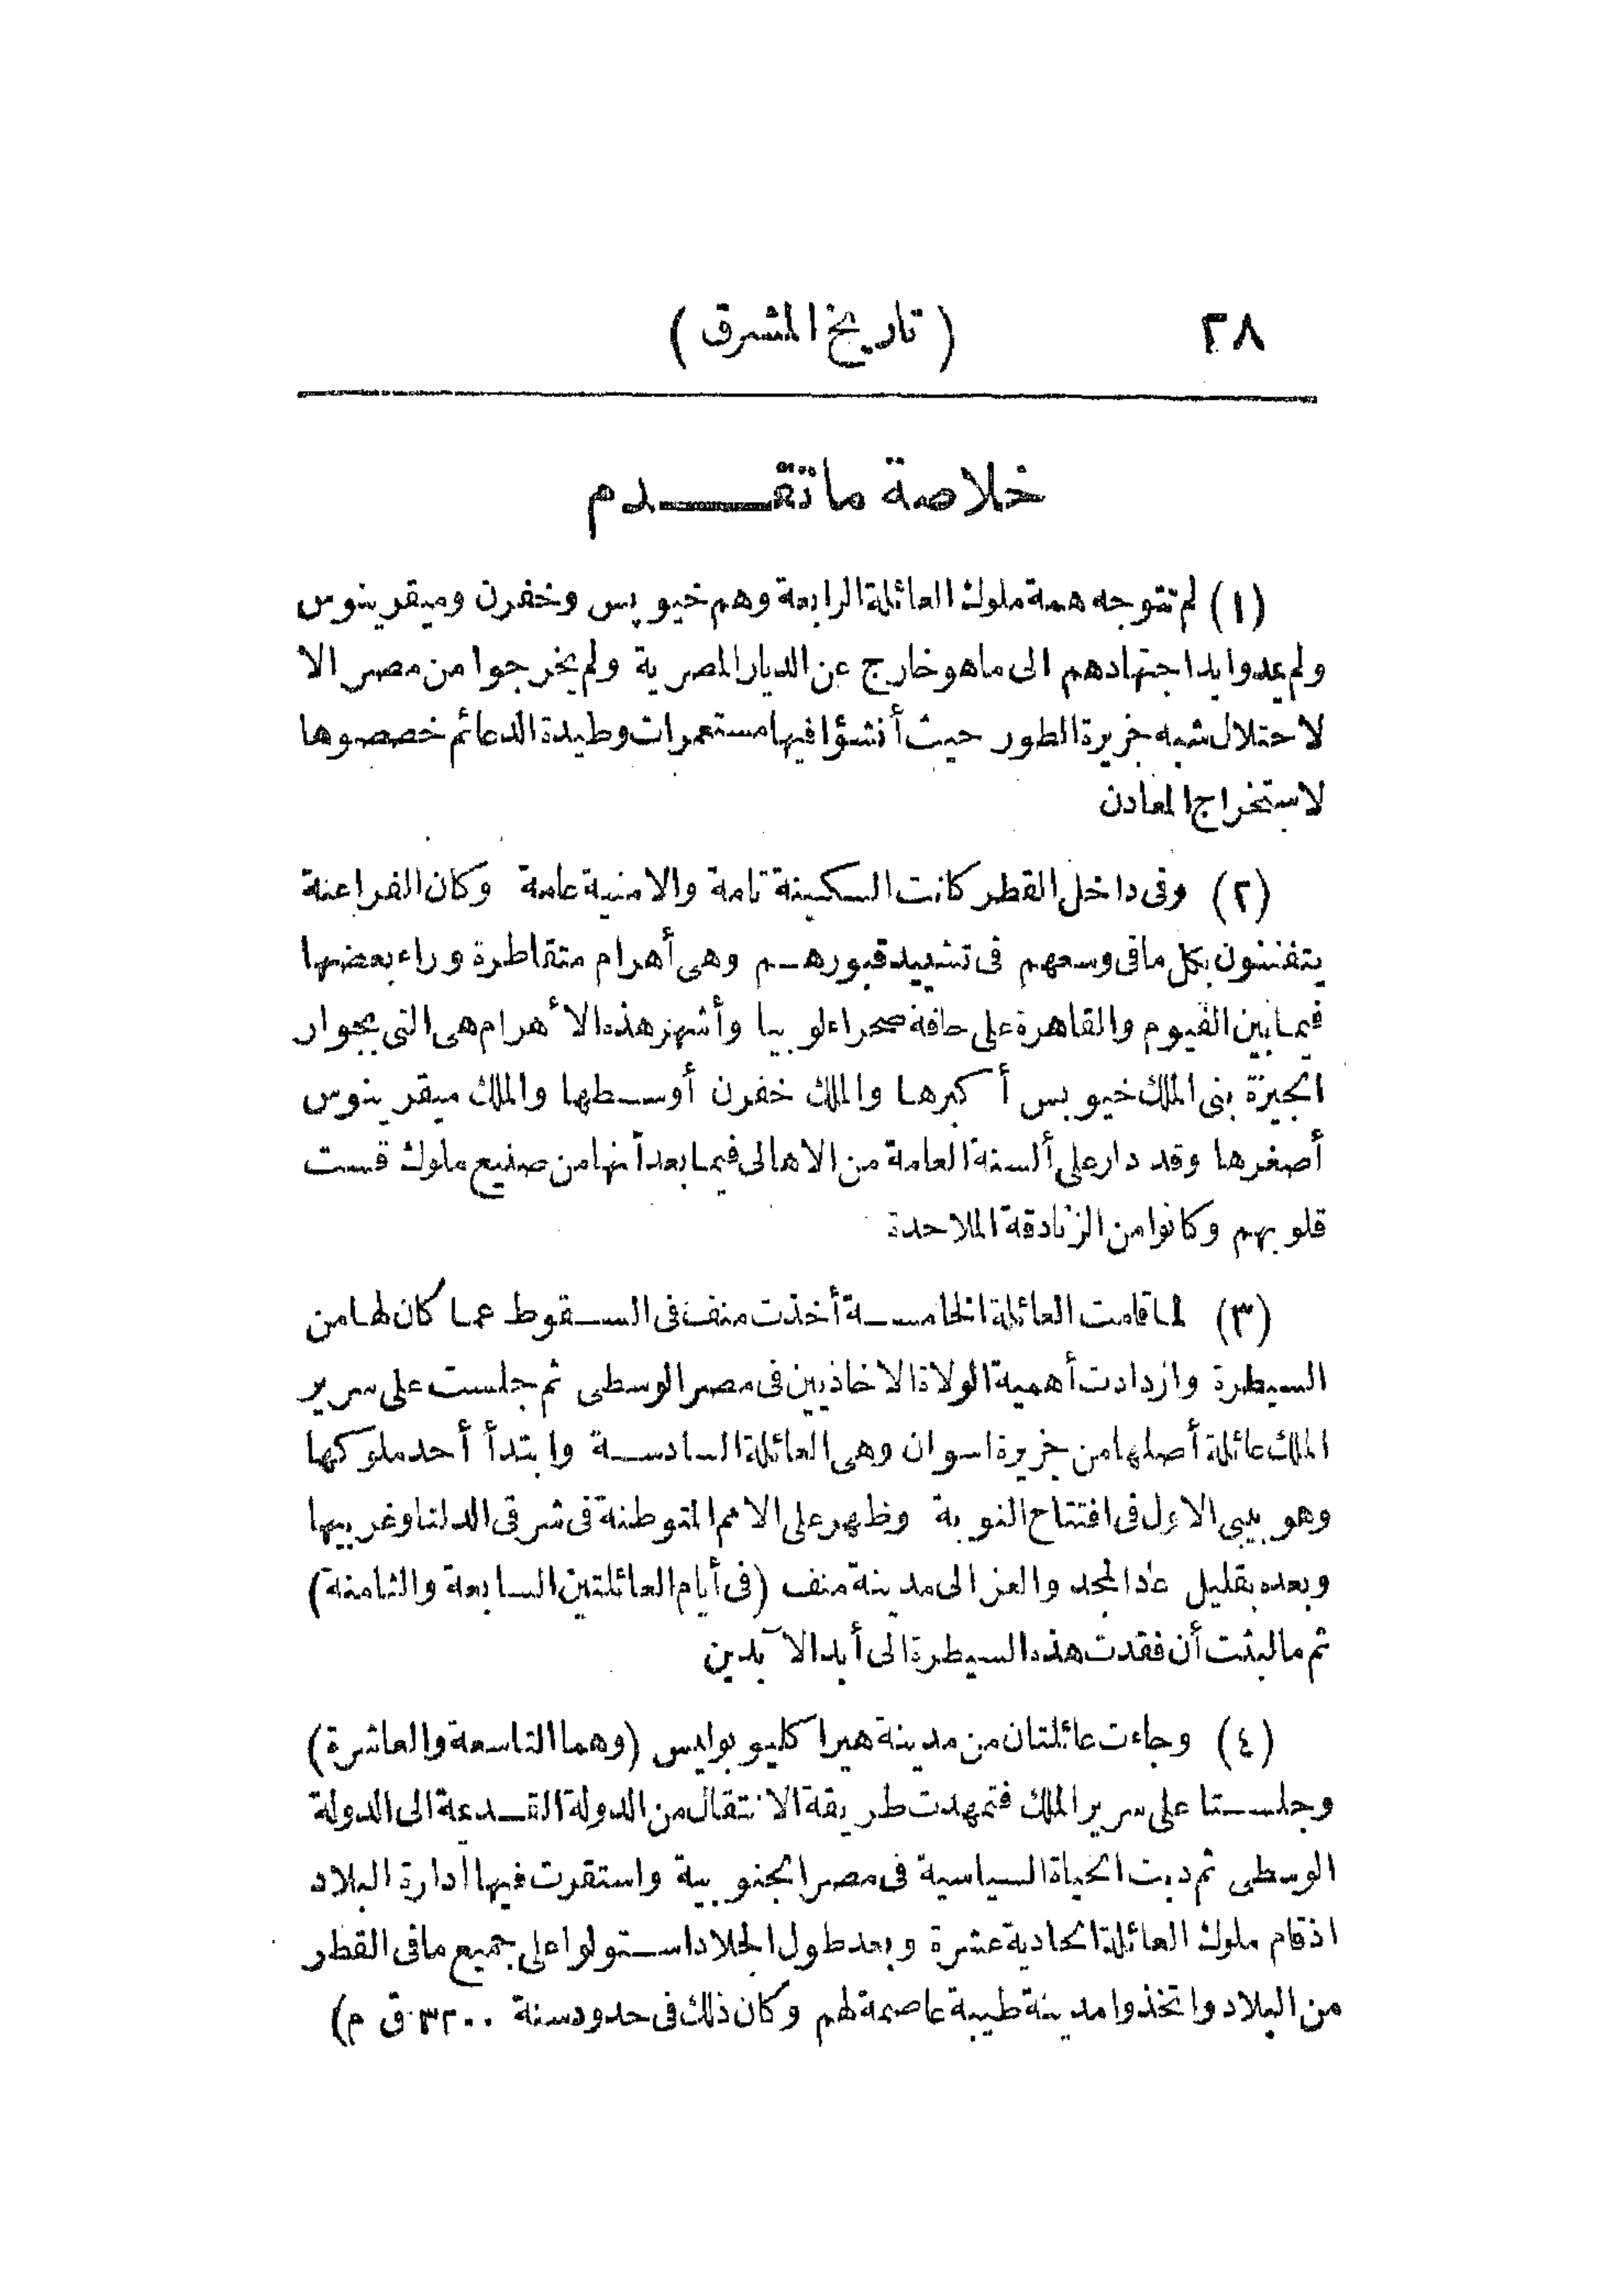 ٢٨ (تاريخ المشرق)
خلاصة ما تقدم
(١) لم تتوجه همة ملوك العائلة الرابعة وهم خيوپس وخفرن وميقرينوس
ولم يمدوا يد اجتهادهم الى ما هو خارج عن الديار المصرية ولم يخرجوا من مصر الا
لاحتلال شبه جزيرة الطور حيث أنشؤا فيها مستعمرات وطيدة الدعائم خصصوها
لاستخراج المعادن
(٢) وفى داخل القطر كانت السكينة تامة والامنية عامة وكان الفراعنة
يتفننون بكل ما فى وسعهم فى تشييد قبورهم وهى أهرام متقاطرة وراء بعضها
فيما بين الفيوم والقاهرة على حافة صحراء لوبيا وأشهر هذه الأهرام هى التى بجوار
الجيزة بنى الملك خيوپس أكبرها والملك خفرن أوسطها والملك ميقرينوس
أصغرها وقد دار على ألسنة العامة من الاهالى فيما بعد أنها من صنيع ملوك قست
قلوبهم وكانوا من الزنادقة الملاحدة
(٣) لما قامت العائلة الخامسة أخذت منف فى السقوط عما كان لها من
السيطرة وازدادت أهمية الولاة الاخاذيين فى مصر الوسطى ثم جلست على سرير
الملك عائلة أصلها من جزيرة اسوان وهى العائلة السادسة وابتدأ أحد ملوكها
وهو پيپى الاول فى افتتاح النوبة وظهر على الامم المتوطنة فى شرقى الدلتا وغربيها
وبعده بقليل عاد المجد والعز الى مدينة منف (فى أيام العائلتين السابعة والثامنة)
ثم ما لبثت أن فقدت هذه السيطرة الى أبد الآبدين
(٤) وجاءت عائلتان من مدينة هيراكليوبوليس (وهما التاسعة والعاشرة)
وجلستا على سرير الملك فتمهدت طريقة الانتقال من الدولة القديمة الى الدولة
الوسطى ثم دبت الحياة السياسية فى مصر الجنوبية واستقرت فيها ادارة البلاد
اذ قام ملوك العائلة الحادية عشرة وبعد طول الجلاد استولوا على جميع ما فى القطر
من البلاد واتخذوا مدينة طيبة عاصمة لهم وكان ذلك فى حدود سنة ٣٢٠٠ ق م)